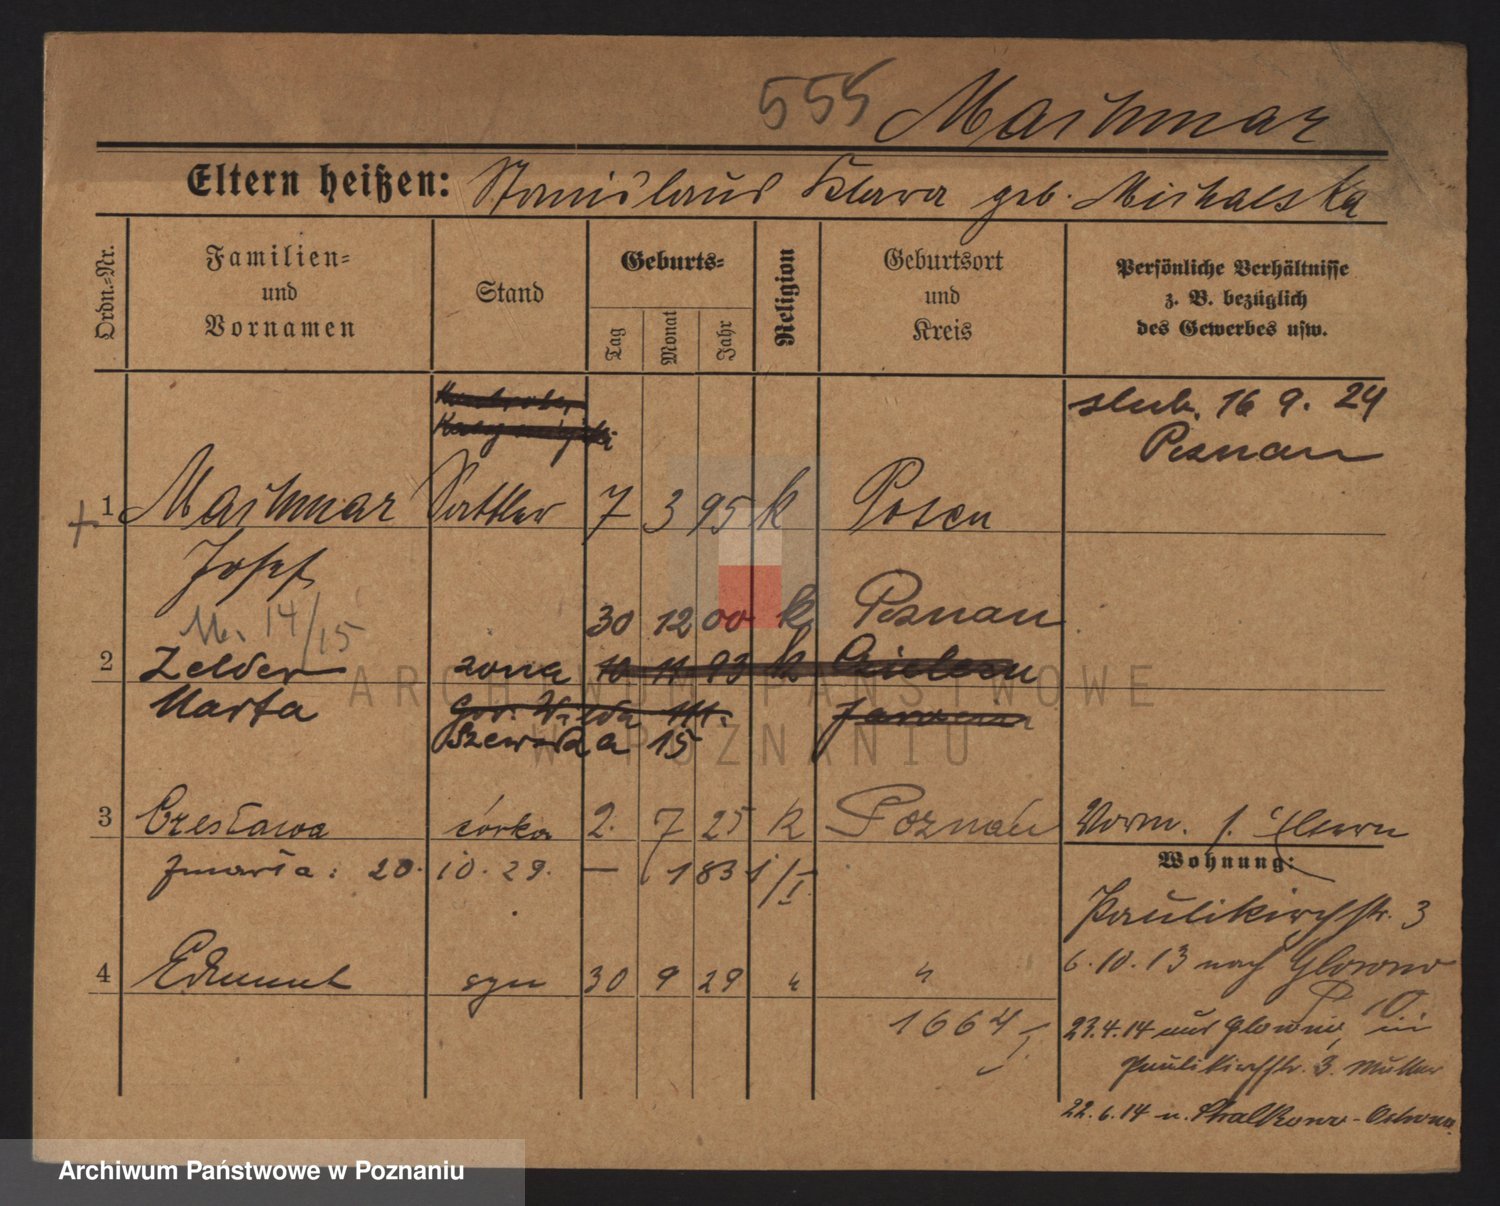 555 Maihmar
Eltern heißen: Stanislaus Klara geb. Michalska
Ordn.-Nr.
Familien- und Vornamen
Stand
Geburts-
Tag
Monat
Jahr
Religion
Geburtsort und Kreis
Persönliche Verhältnisse z. B. bezüglich des Gewerbes usw.
slub. 16 9. 24
Poznan
1 Maihmar Sattler 7 3 95 k Posen
Josef
M. 14/15
30 12 00 k Poznan
2 Zelder zona 10 11 93 k
Marta
Szewska 15
3 Czesława córka 2. 7 25 k Poznań Vorm. s. Eltern
zmarła: 20. 10. 29. — 1831/I
Wohnung:
Paulikirchstr. 3
6.10.13 nach Glowno
4 Edmund syn 30 9 29 " "
1664/I
23.4.14 aus Glowno
Paulikirchstr. 3. Mutter
22.6.14 n. Ostrowo
ARCHIWUM PAŃSTWOWE
W POZNANIU
Archiwum Państwowe w Poznaniu